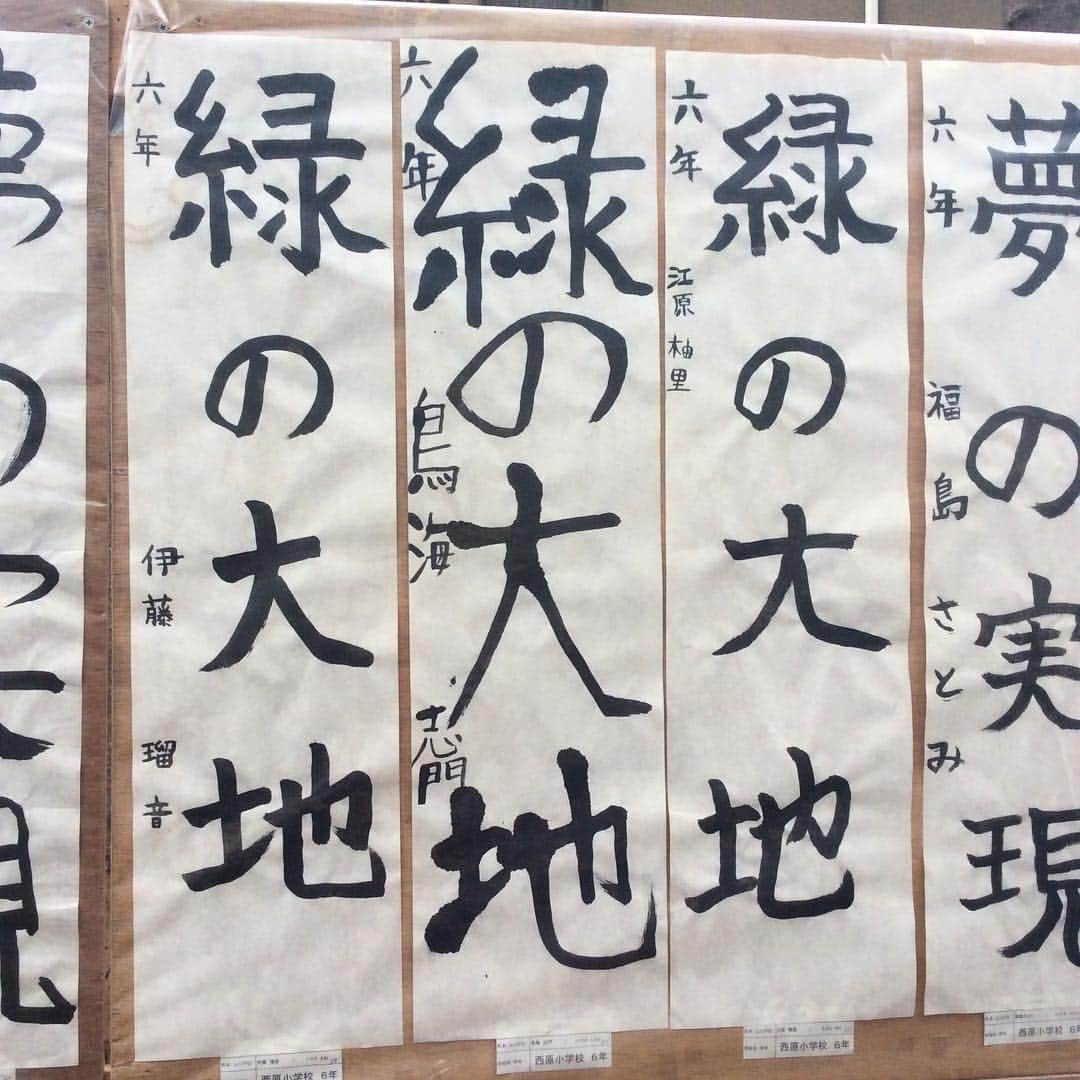 緑の大地
六年 伊藤 瑠音
緑の大地
六年 鳥海 志門
緑の大地
六年 江原 柚里
夢の実現
六年 福島 さとみ
西原小学校 6年
西原小学校 6年
西原小学校 6年
西原小学校 6年